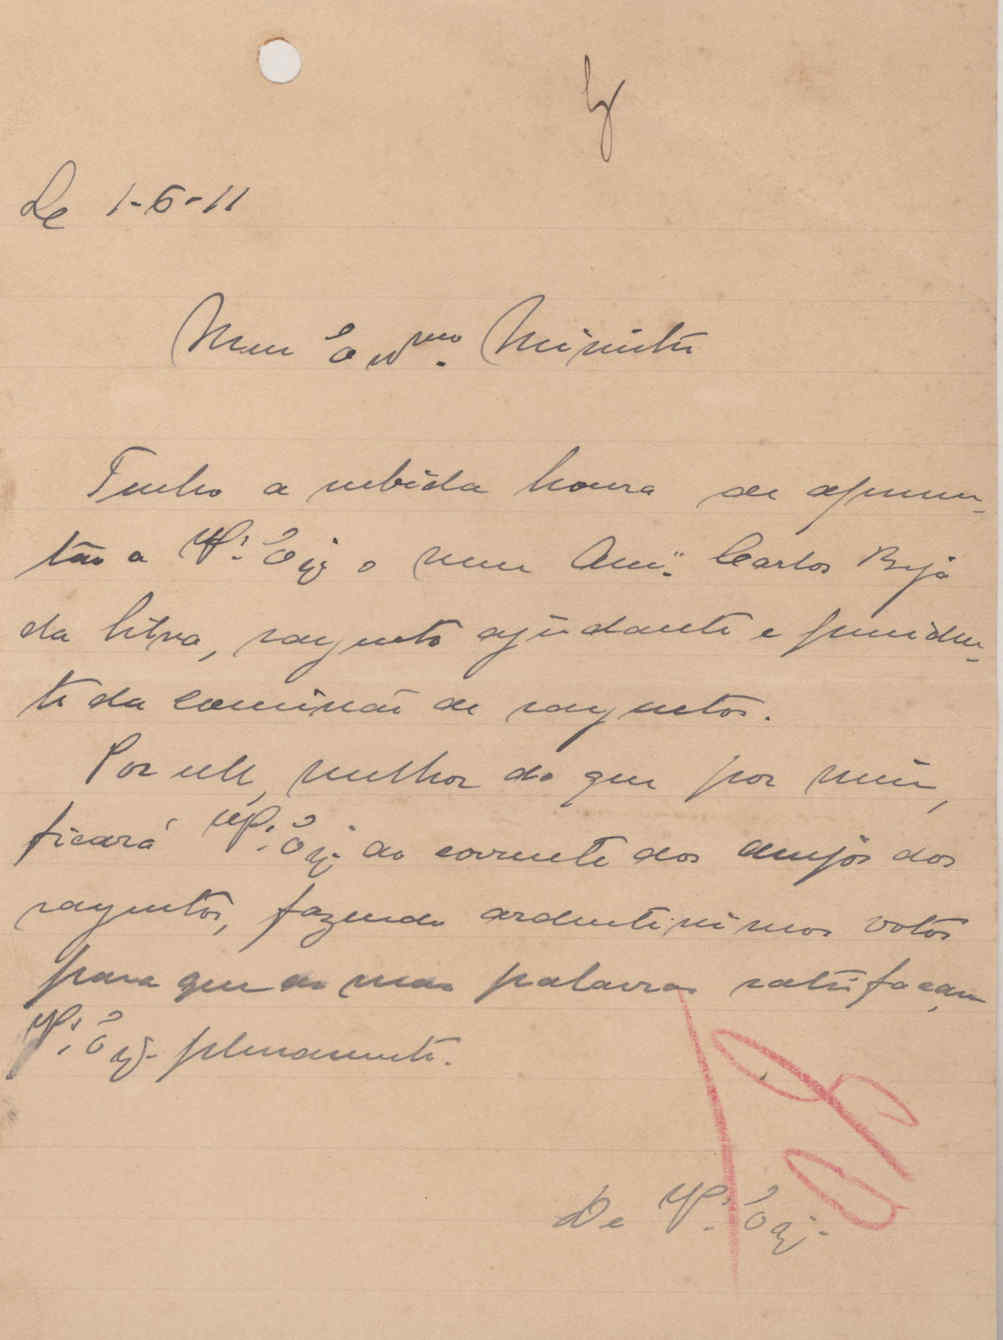 De 1-6-11
Meu Exmo. Ministro
Tenho a subida honra de apresen-
tar a V. Exª o meu Amº. Carlos Beja
da Silva, sargento ajudante e presiden-
te da comissão de sargentos.
Por elle, melhor do que por mim,
ficará V. Exª. ao corrente dos desejos dos
sargentos, fazendo ardentissimos votos
para que as suas palavras satisfaçam
V. Exª. plenamente.
De V. Exª.